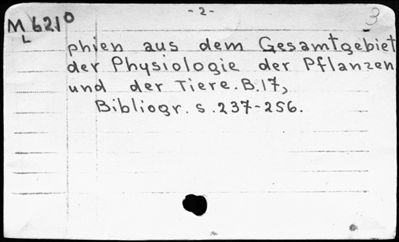 - 2 -
3
M 621⁰
L
phien aus dem Gesamtgebiet
der Physiologie der Pflanzen
und der Tiere. B.17,
Bibliogr. s. 237-256.